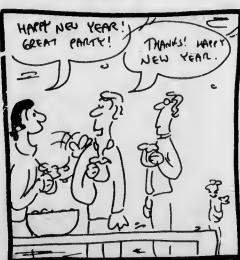 HAPPY NEW YEAR!
GREAT PARTY!
THANKS! HAPPY
NEW YEAR.